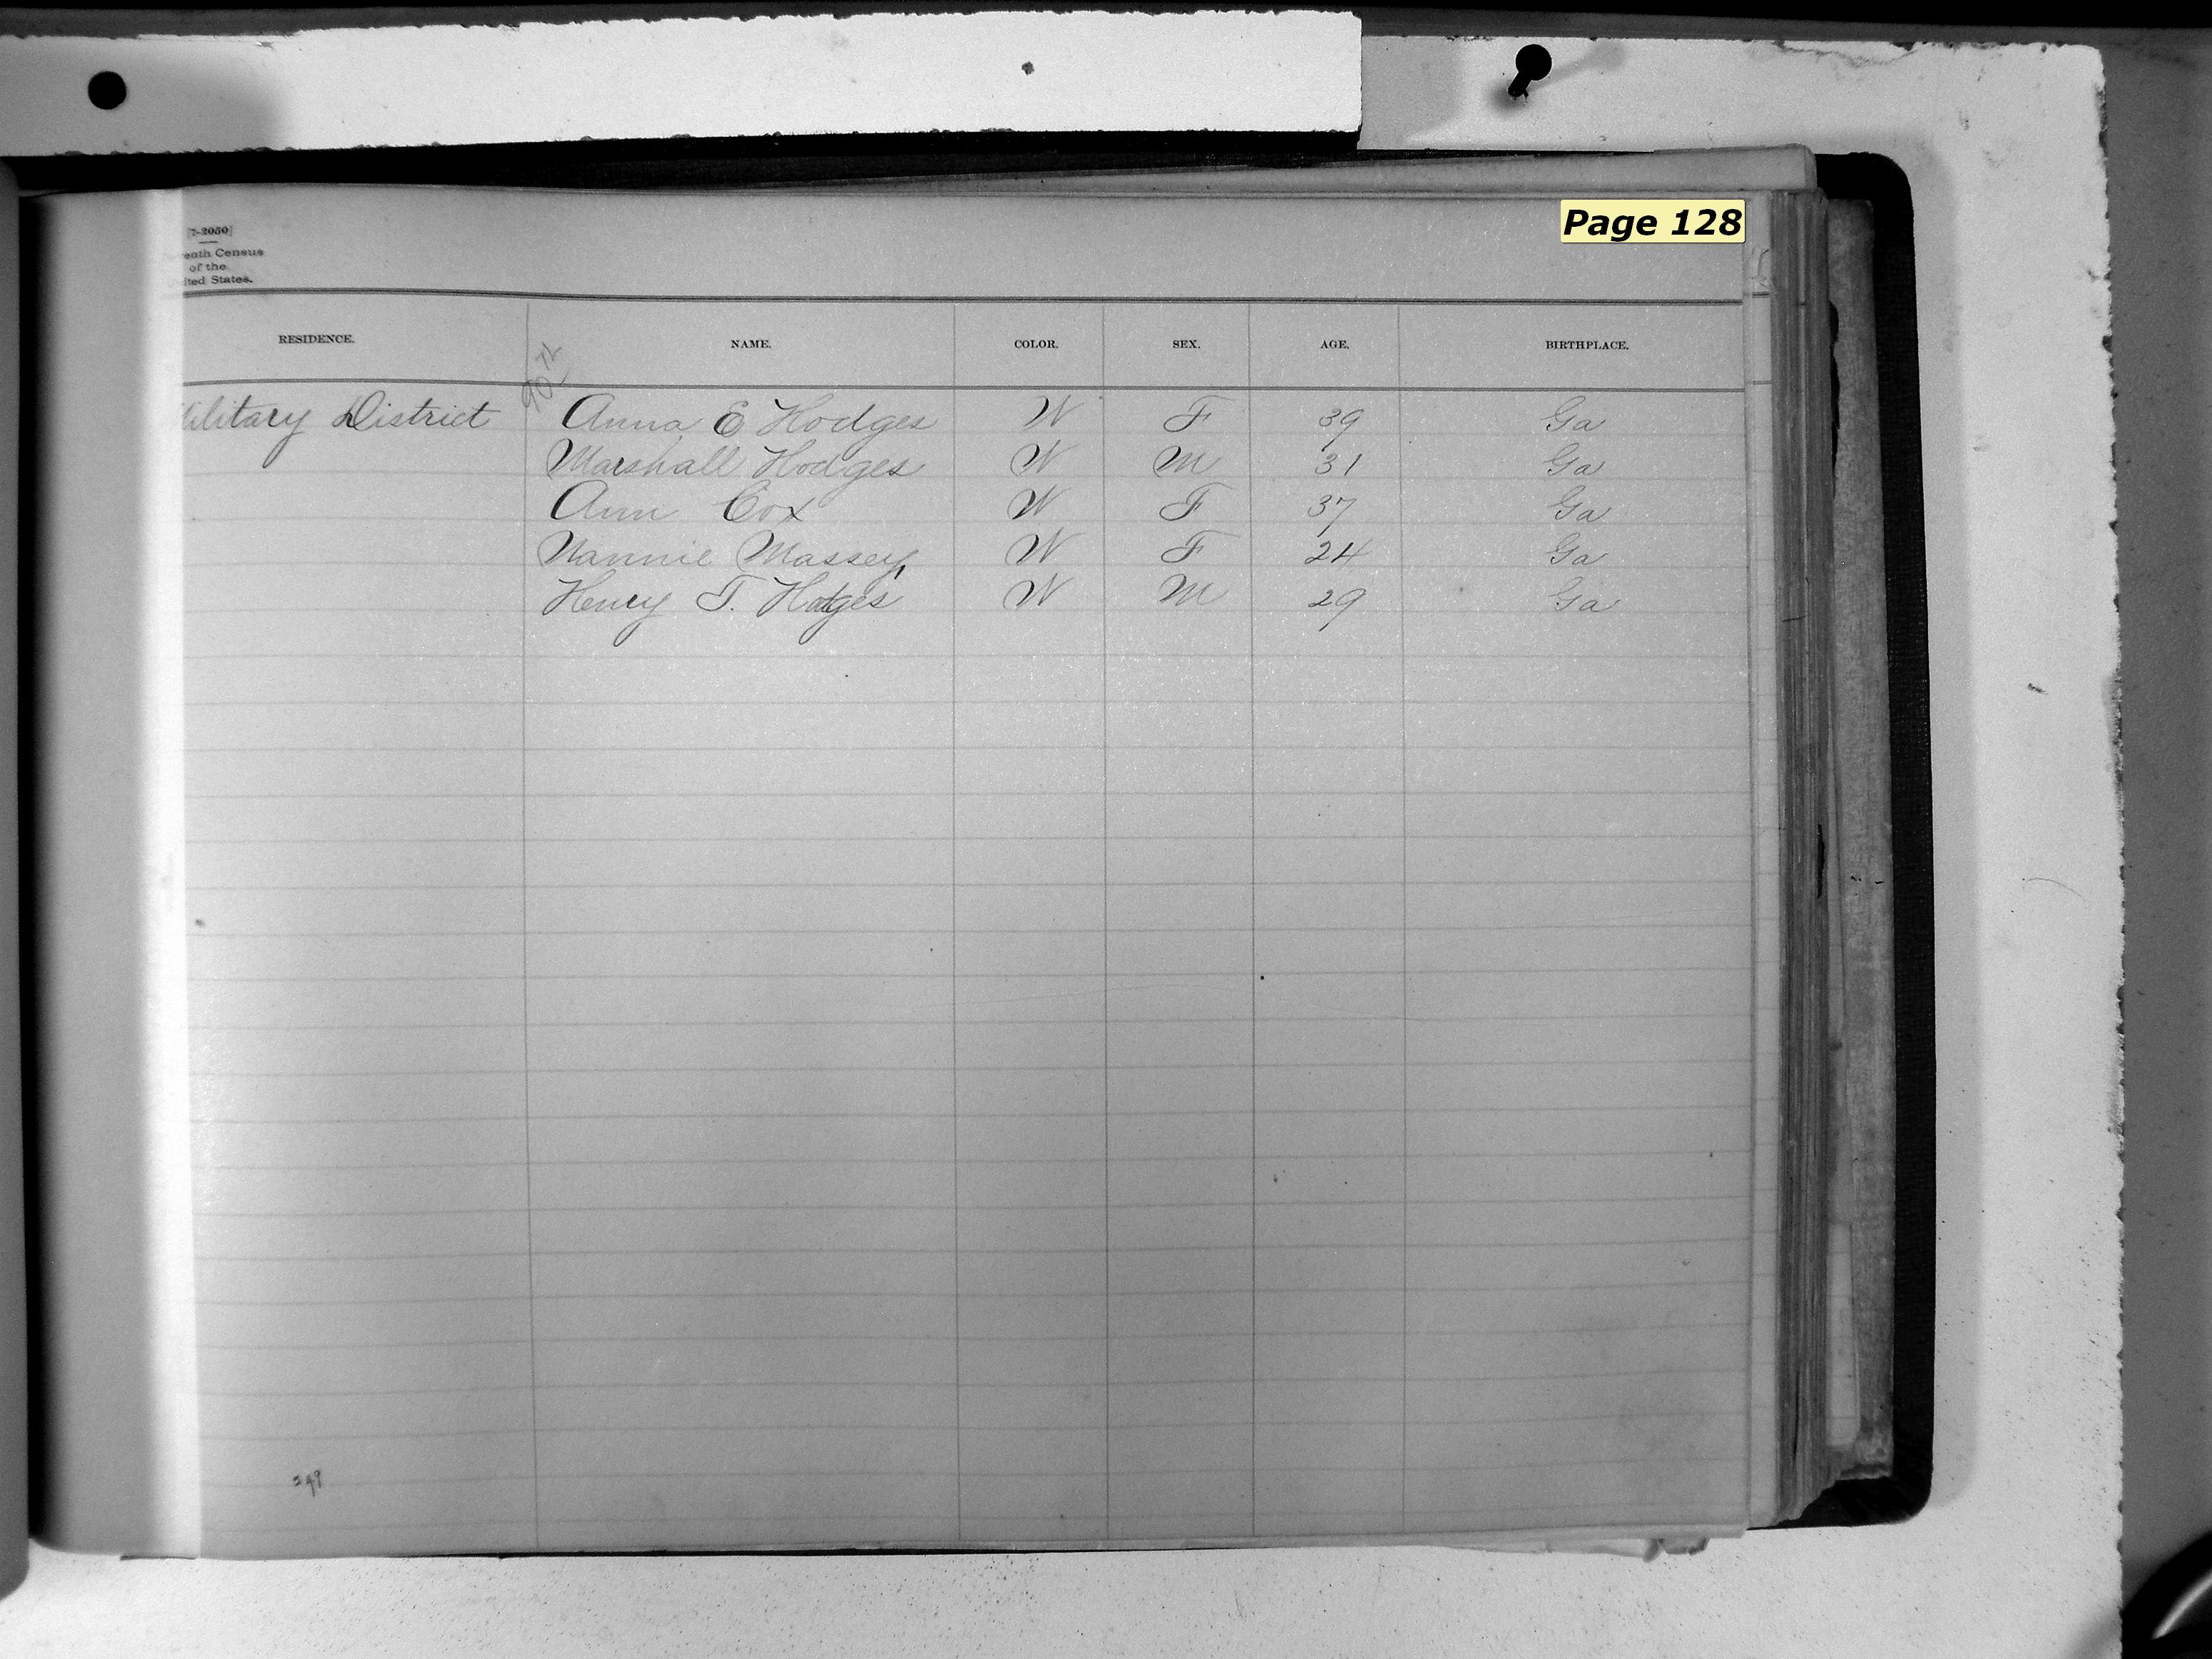 Page 128
[7-2050]
enth Census
of the
ited States.
RESIDENCE. NAME. COLOR. SEX. AGE. BIRTHPLACE.
Military District Anna E Hodges W F 39 Ga
Marshall Hodges W M 31 Ga
Ann Cox W F 37 Ga
Nannie Massey W F 24 Ga
Henry T. Hodges W M 29 Ga